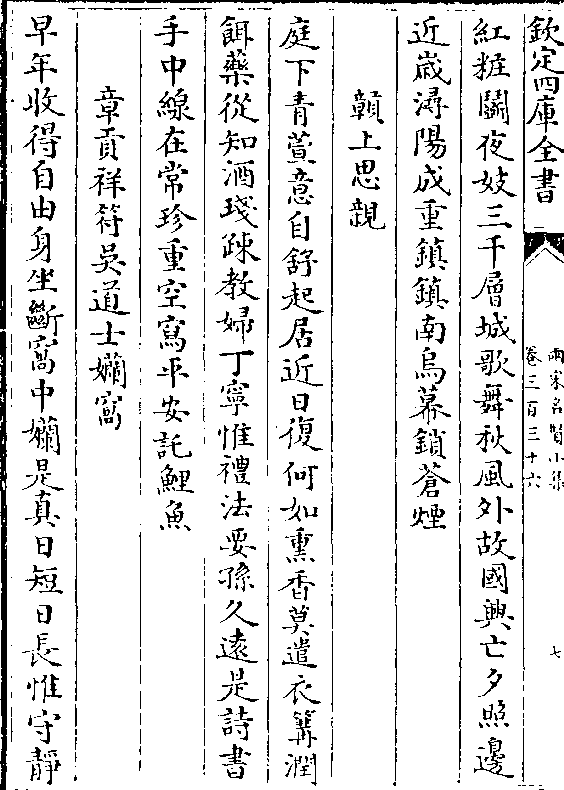 欽定四庫全書
兩宋名賢小集
卷三百三十六
七
紅粧鬬夜妓三千層城歌舞秋風外故國興亡夕照邊
近嵗潯陽成重鎮鎮南烏幕鎖蒼煙
顛上思親
庭下青萱意自舒起居近日復何如熏香莫遣衣篝潤
餌藥從知酒琖踈教婦丁寧惟禮法要孫久遠是詩書
手中線在常珍重空寫平安託鯉魚
章貢祥符吳道士嬾窩
早年收得自由身坐斷窩中嬾是真日短日長惟守靜